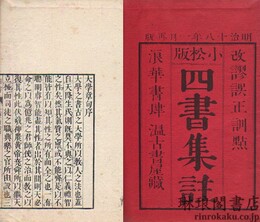 改謬誤正訓點
小松版
四書集註
浪華書肆 温古書屋藏
大學章句序
大學之書古之大學所以敎人之法也蓋
自天降生民則旣莫不與之以仁義禮智
之性矣然其氣質之稟或不能齊是以不
能皆有以知其性之所有而全之也一有
聰明睿智能盡其性者出於其閒則天必
命之以爲億兆之君師使之治而敎之以
復其性此伏羲神農黃帝堯舜所以繼天
立極而司徒之職典樂之官所由設也三
琳琅閣書店
rinrokaku.co.jp